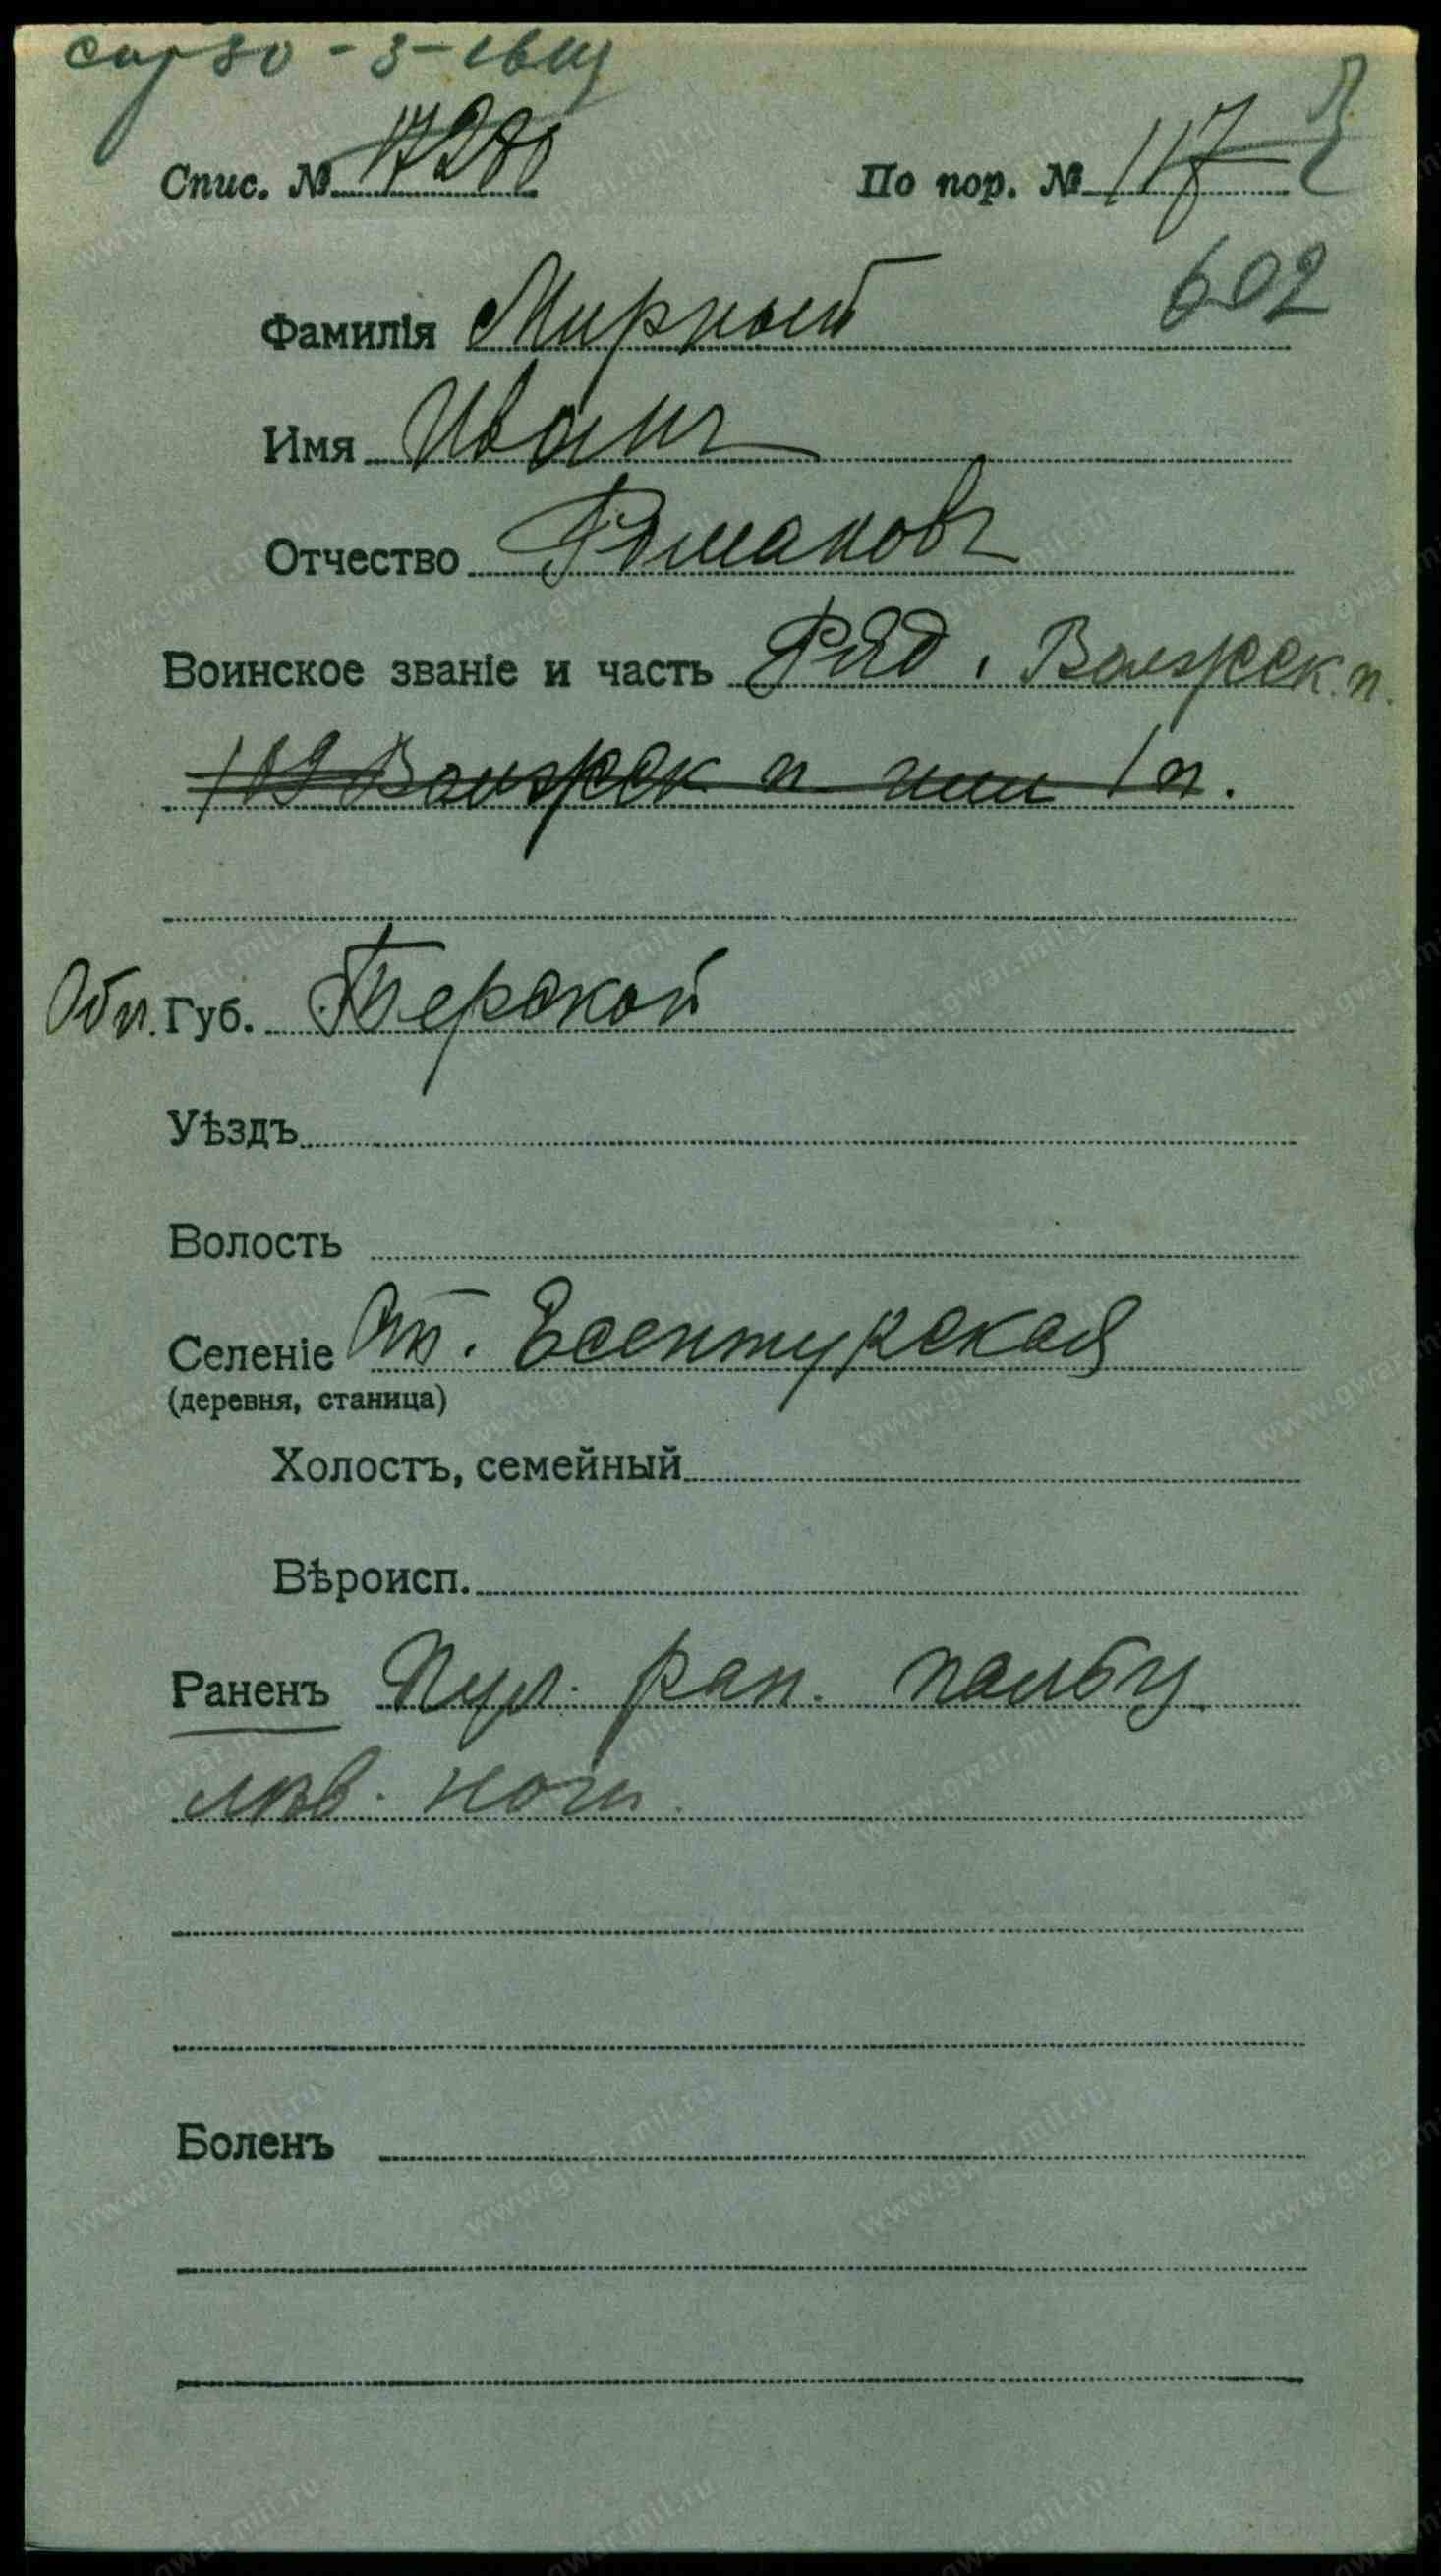 Спис. № 17280 По пор. № 117
602
Фамилія Мирный
Имя Иванъ
Отчество Романовъ
Воинское званіе и часть Ряд. Волжск. п.
Волжск п или 1 п.
Обл. Губ. Терской
Уѣздъ
Волость
Селеніе Ст. Есентукская
(деревня, станица)
Холостъ, семейный
Вѣроисп.
Раненъ Пул. ран. пальц.
лѣв. ноги.
Боленъ
www.gwar.mil.ru